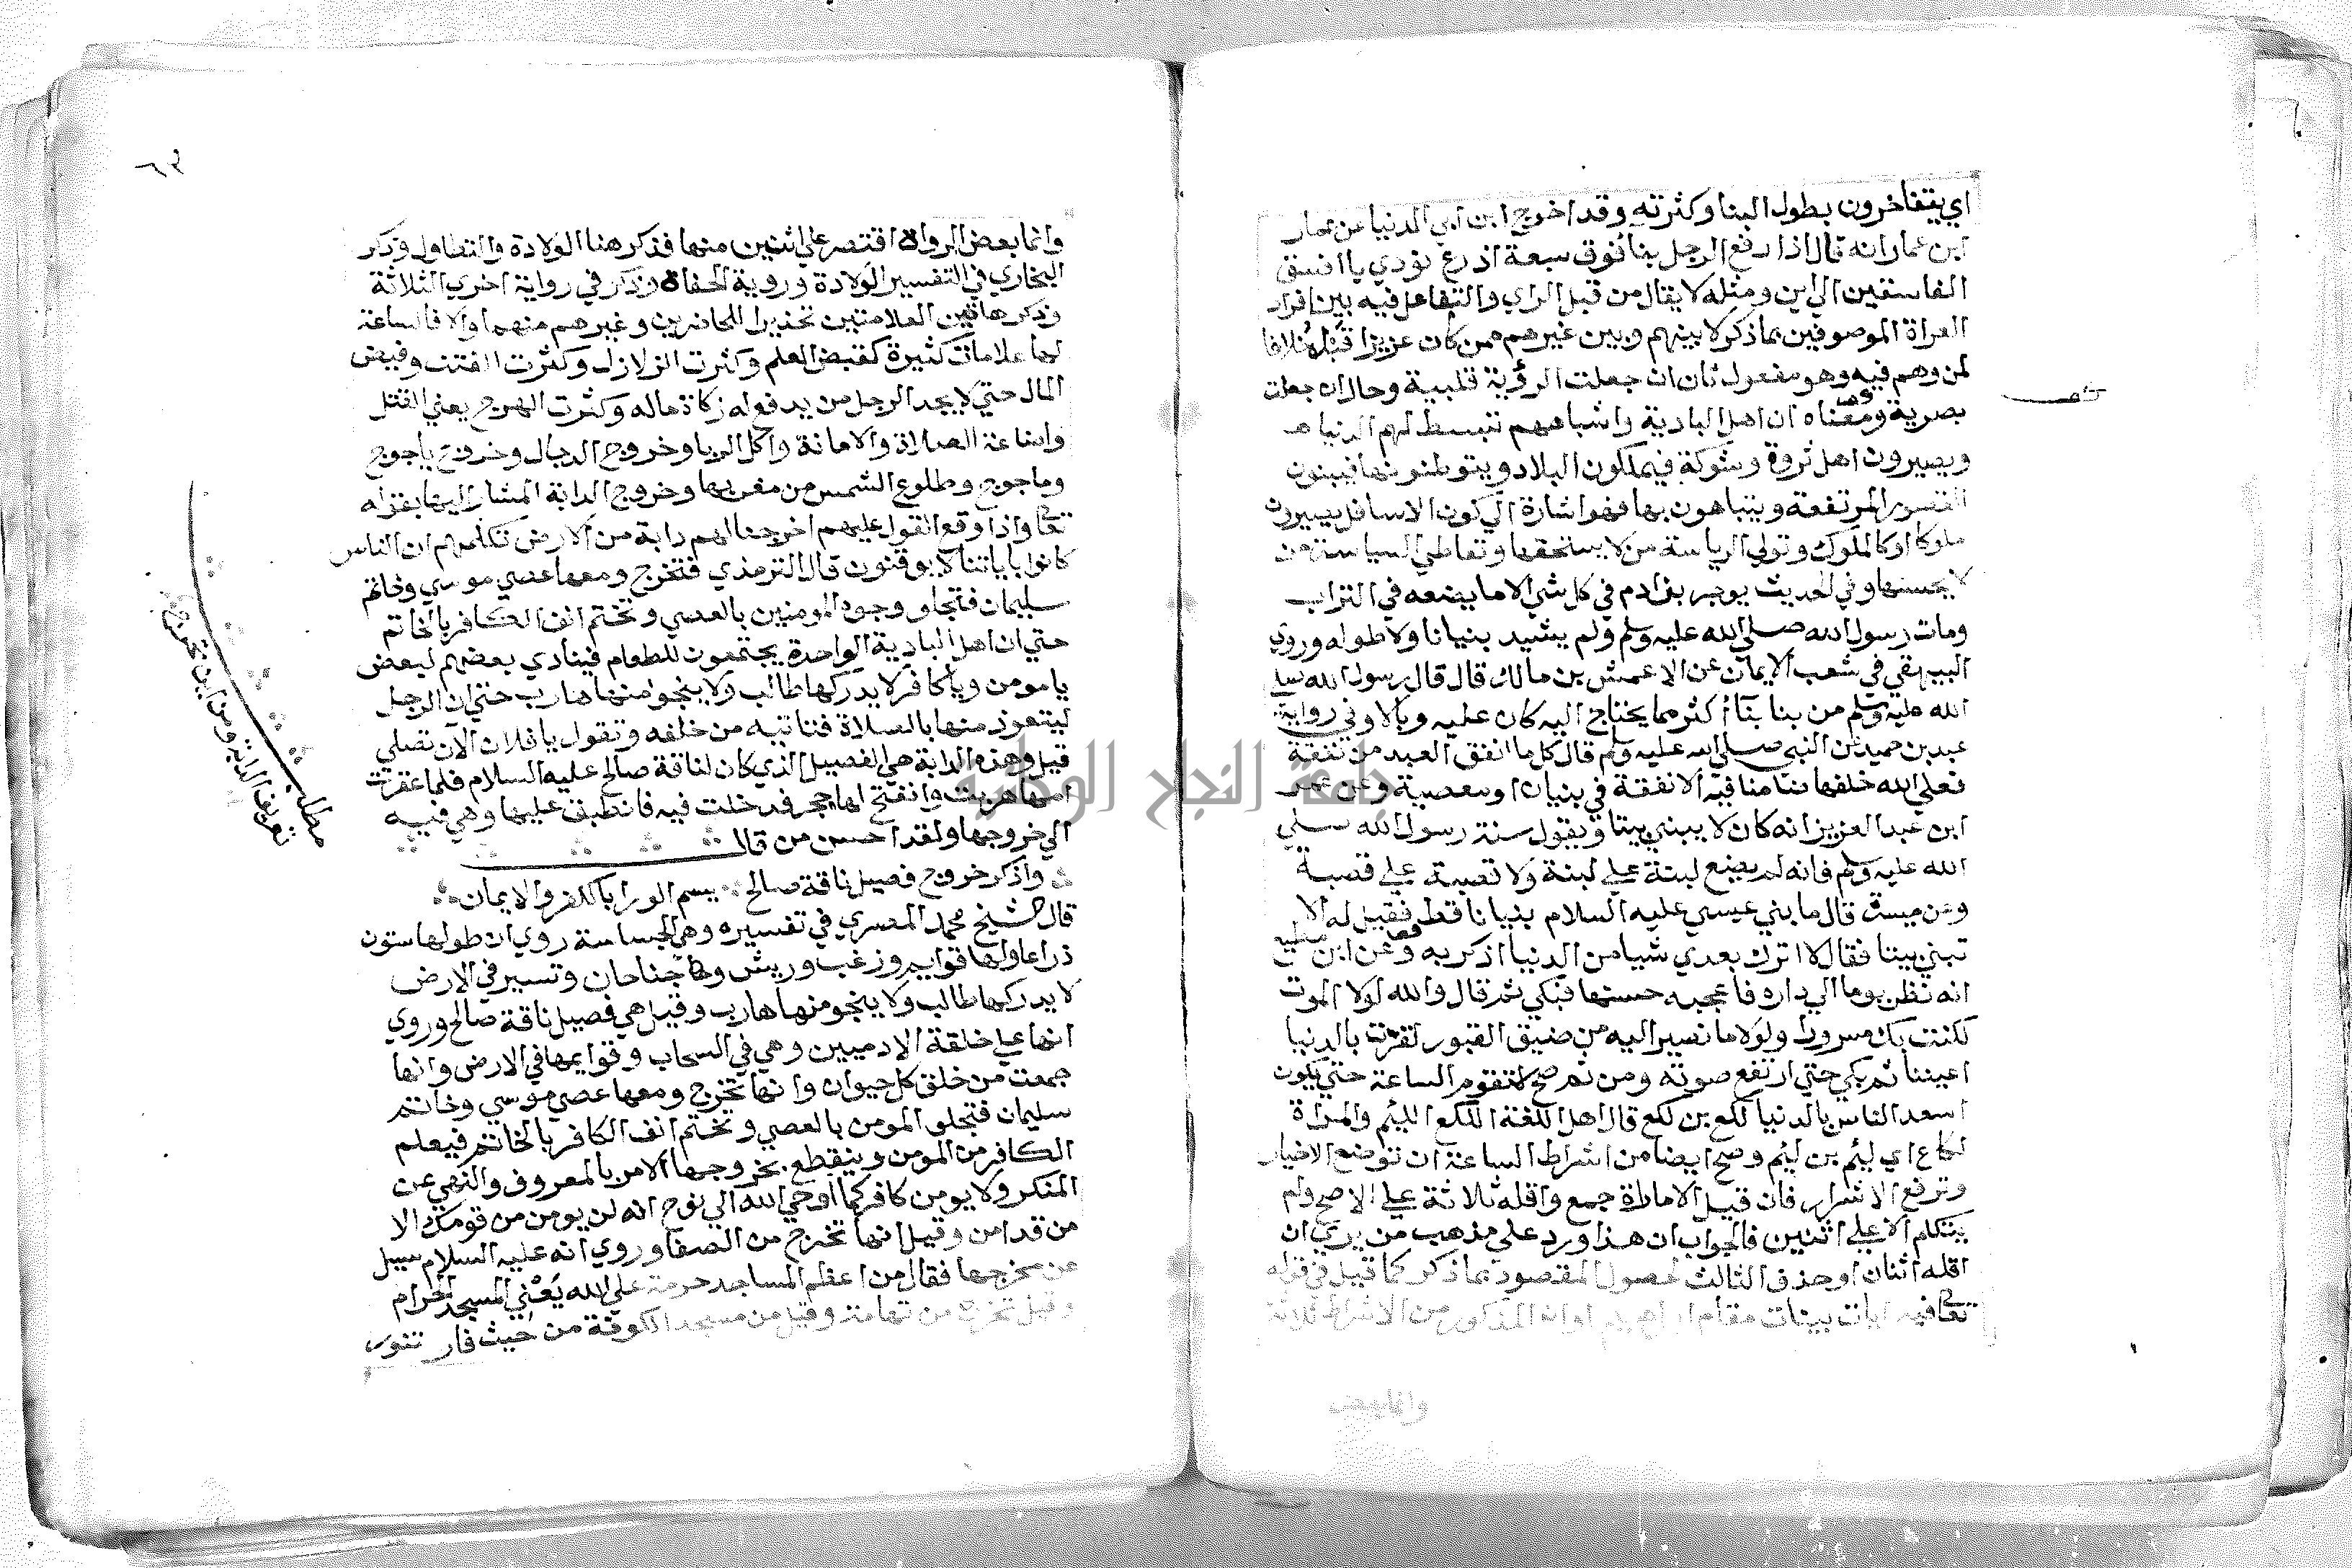 اي يتفاخرون بطول البنا وكثرته وقد اخرج ابن ابي الدنيا عن عمار
ابن عمار انه قال اذا رفع الرجل بنا فوق سبعة اذرع نودي يا افسق
الفاسقين الي اين ومثله لا يقال من قبل الراي والتفاعل فيه بين افراد
العراة الموصوفين بما ذكر لا بينهم وبين غيرهم ممن كان عزيزا
لمن وهم فيه وهو مفعول ثان ان جعلت الرؤية قلبية وحال ان جعلت
بصرية ومعناه ان اهل البادية واشباههم تبسط لهم الدنيا
ويصيرون اهل ثروة وشوكة فيملكون البلاد ويتوطنونها فيبنون
القصور المرتفعة ويتباهون بها فهو اشارة الي كون الاسافل يصيرون
ملوكا او كالملوك وتولي الرياسة من لا يستحقها وتعاطي السياسة من
لا يحسنها وفي الحديث يوجر بن ادم في كل شي الا ما يضعه في التراب
ومات رسول الله صلي الله عليه وسلم ولم يشيد بنيانا ولا طوله وروي
البيهقي في شعب الايمان عن الاعمش بن مالك قال قال رسول الله صلي
الله عليه وسلم من بنا بنآ اكثر مما يحتاج اليه كان عليه وبالا وفي رواية
عبد بن حميد عن النبي صلي الله عليه وسلم قال كل ما انفق العبد من نفقة
فعلي الله خلفها ضامنا فيه الا نفقة في بنيان او معصية وعن عمر
ابن عبد العزيز انه كان لا يبني بيتا ويقول سنة رسول الله صلي
الله عليه وسلم فانه لم يضع لبنة علي لبنة ولا قصبة علي قصبة
وعن ميسرة قال ما بني عيسي عليه السلام بنيانا قط فقيل له الا
تبني بيتا فقال لا اترك بعدي شيا من الدنيا اذكر به وعن ابن مطيع
انه نظر يوما الي داره فاعجبه حسنها فبكي ثم قال والله لولا الموت
لكنت بك مسرورا ولولا ما نصير اليه من ضيق القبور لقرت بالدنيا
اعيننا ثم بكي حتي ارتفع صوته ومن ثم صح لا تقوم الساعة حتي يكون
اسعد الناس بالدنيا لكع بن لكع قال اهل اللغة اللكع اللئيم والمراة
لكاع اي لئيم بن لئيم وصح ايضا من اشراط الساعة ان توضع الاخيار
وترفع الاشرار فان قيل الامارة جمع واقله ثلاثة علي الاصح ولم
يتكلم الا علي اثنين فالجواب ان هذا ورد علي مذهب من يري ان
اقله اثنان او حذف الثالث لحصول المقصود بما ذكر كما قيل في قوله
تعا فيه ايات بينات مقام ابراهيم او ان المذكور من الاشراط ثلاثة
وانما بعض
٦٣
وانما بعض الرواة اقتصر علي اثنين منها فذكر هنا الولادة والتطاول وذكر
البخاري في التفسير الولادة وروية الحفاة وذكر في رواية اخري الثلاثة
وذكر هاتين العلامتين تحذيرا للحاضرين وغيرهم منهما والا فالساعة
لها علامات كثيرة كقبض العلم وكثرت الزلازل وكثرت الفتن وفيض
المال حتي لا يجد الرجل من يدفع له زكاة ماله وكثرت الهرج يعني القتل
واضاعة الصلاة والامانة واكل الربا وخروج الدجال وخروج ياجوج
وماجوج وطلوع الشمس من مغربها وخروج الدابة المشار اليها بقوله
تعا واذا وقع القول عليهم اخرجنا لهم دابة من الارض تكلمهم ان الناس
كانوا باياتنا لا يوقنون قال الترمذي فتخرج ومعها عصي موسي وخاتم
سليمان فتجلو وجوه المومنين بالعصي وتختم انف الكافر بالخاتم
حتي ان اهل البادية الواحدة يجتمعون للطعام فينادي بعضهم لبعض
يا مومن ويا كافر لا يدركها طالب ولا ينجو منها هارب حتي ان الرجل
ليتعوذ منها بالصلاة فتاتيه من خلفه وتقول يا فلان الآن تصلي
قيل وهذه الدابة هي الفصيل الذي كان لناقة صالح عليه السلام فلما عقرت
امها هربت وانفتح لها حجر فدخلت فيه فانطبق عليها وهي فيه
الي خروجها ولقد احسن من قال
واذكر خروج فصيل ناقة صالح يسم الورا بالكفر والايمان
قال الشيخ محمد المصري في تفسيره وهي الجساسة روي ان طولها ستون
ذراعا ولها قوايم وزغب وريش ولها جناحان وتسير في الارض
لا يدركها طالب ولا ينجو منها هارب وقيل هي فصيل ناقة صالح وروي
انها علي خلقة الادميين وهي في السحاب وقوايمها في الارض وانها
جمعت من خلق كل حيوان وانها تخرج ومعها عصي موسي وخاتم
سليمان فتجلو المومن بالعصي وتختم انف الكافر بالخاتم فيعلم
الكافر من المومن وينقطع بخروجها الامر بالمعروف والنهي عن
المنكر ولا يومن كافر كما اوحي الله الي نوح انه لن يومن من قومك الا
من قد امن وقيل انها تخرج من الصفا وروي انه عليه السلام سيل
عن مخرجها فقال من اعظم المساجد حرمة علي الله يعني المسجد الحرام
وقيل تخرج من تهامة وقيل من مسجد الكوفة من حيث فار تنور
مطلب
تعريف الدابة ومن اين تخرج
جامعة النجاح الوطنية